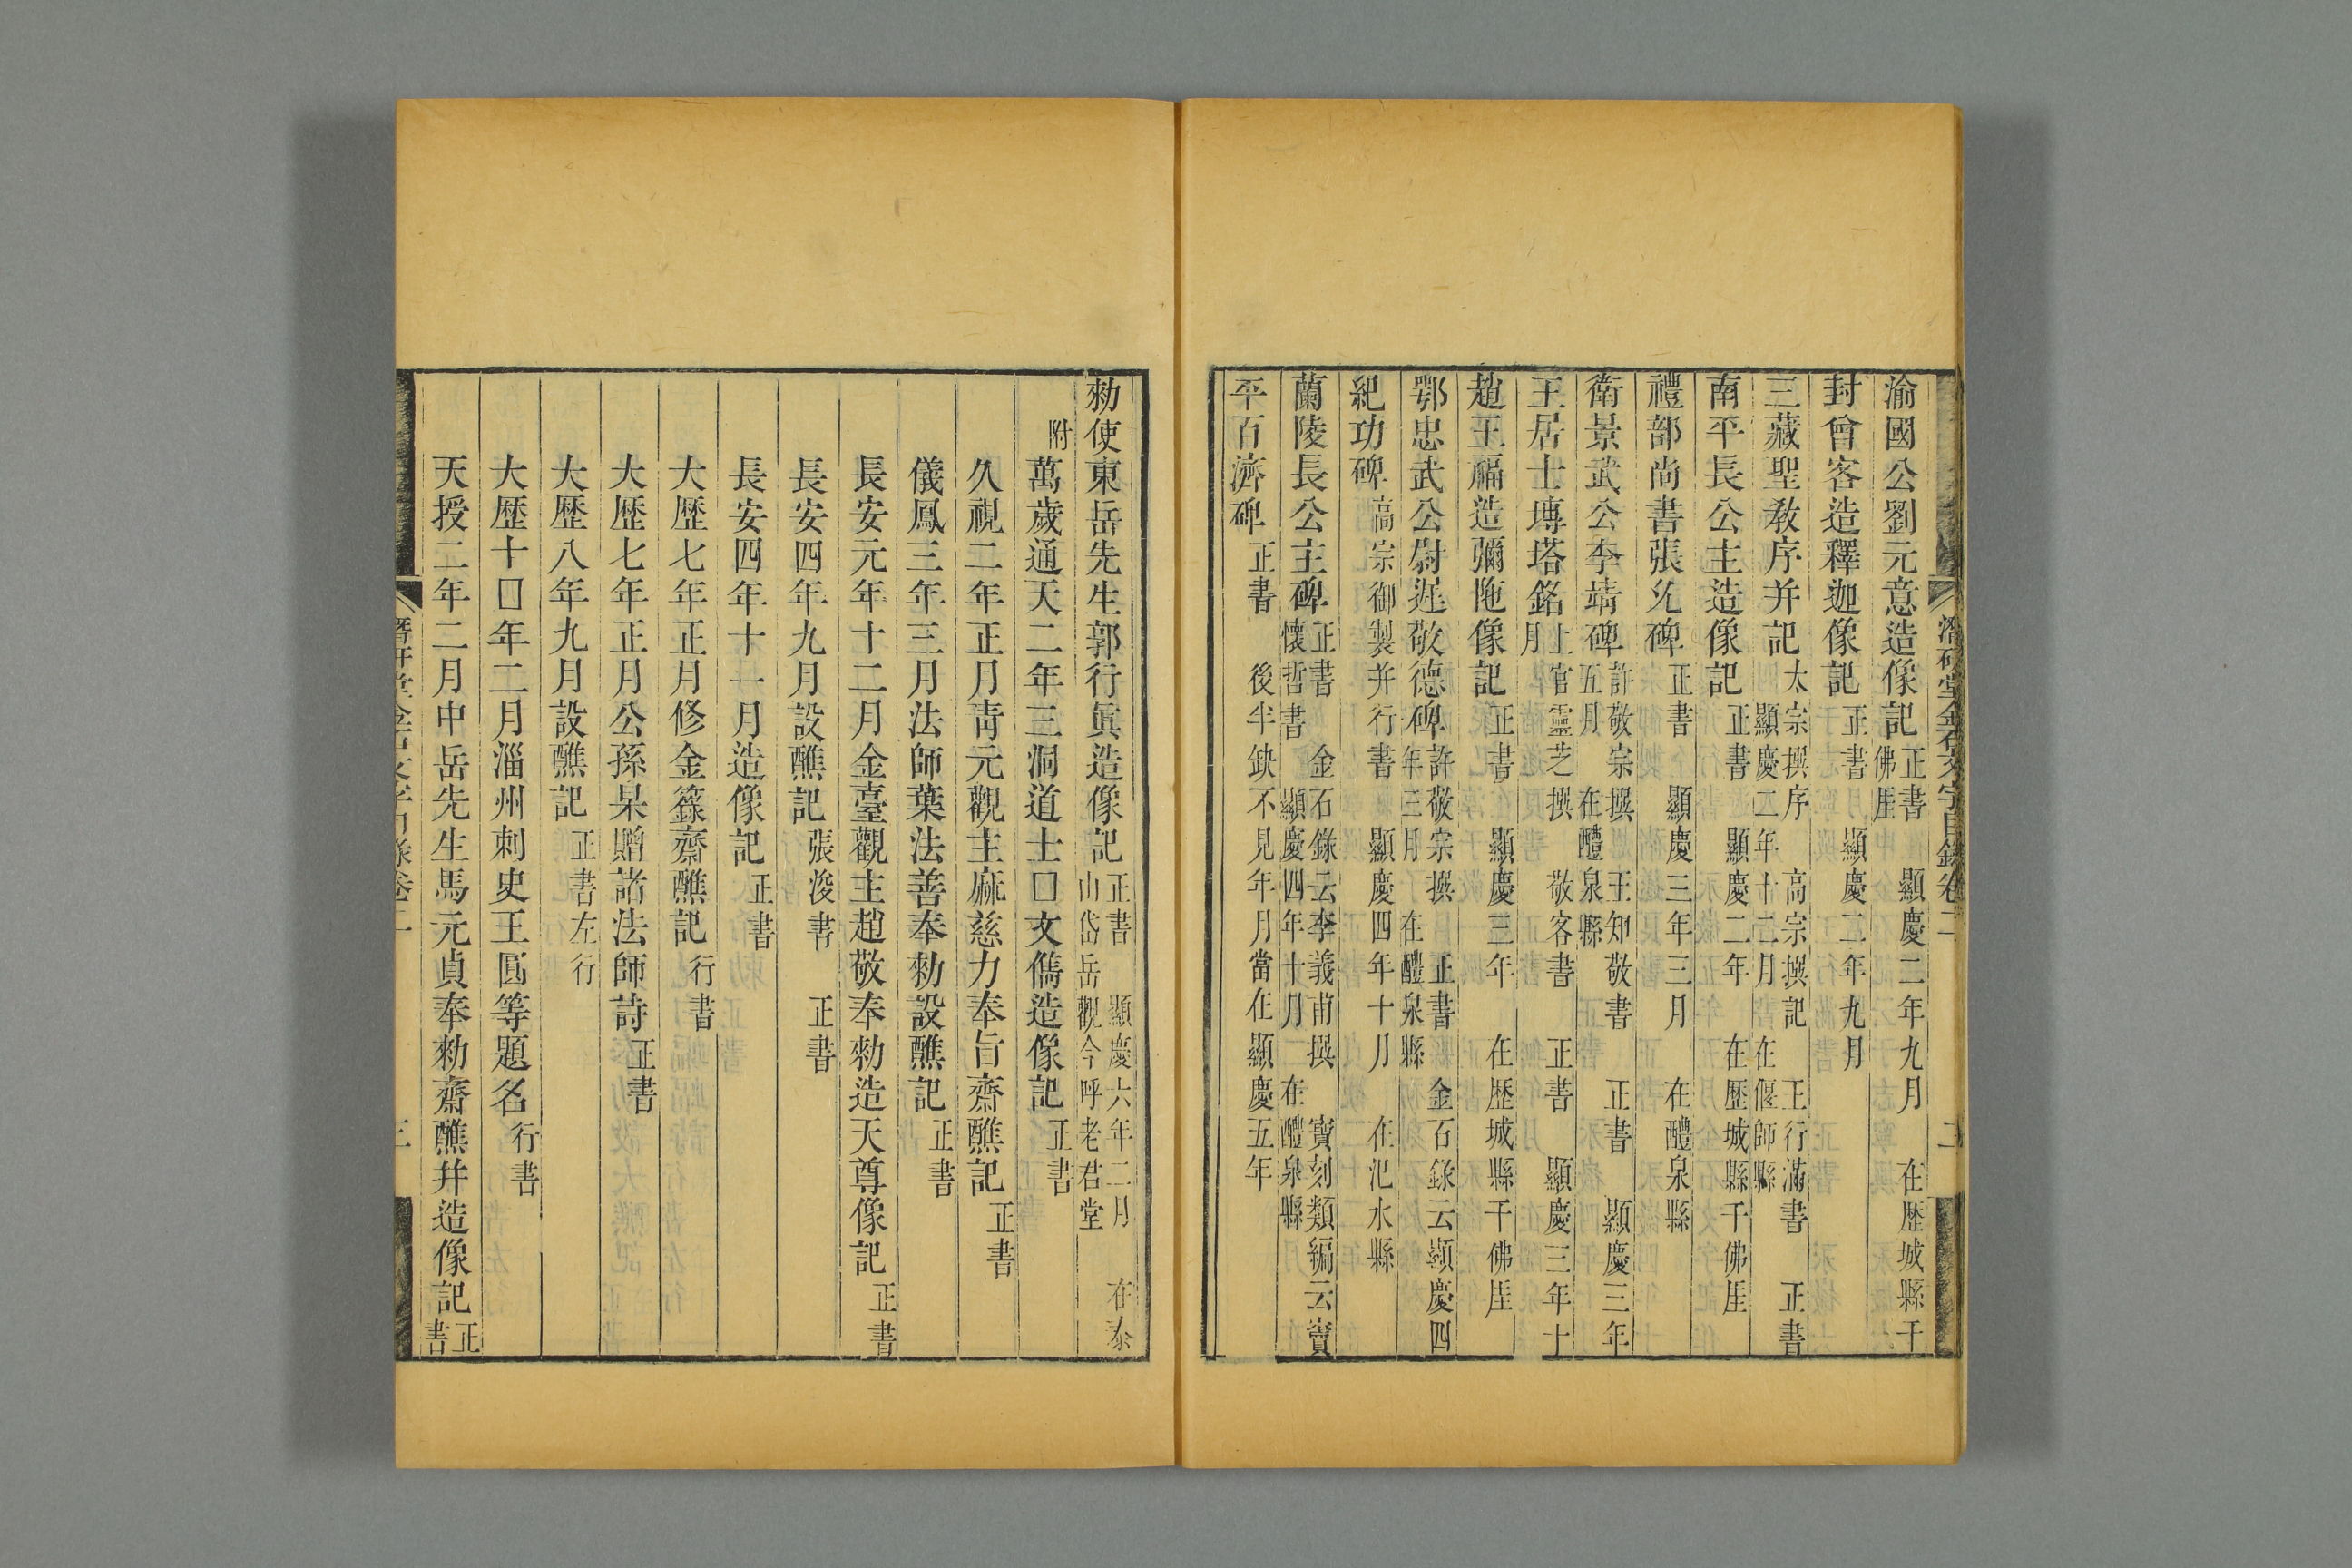 渝國公劉元意造像記 正書 顯慶二年九月 在歷城縣千佛厓
封曾客造釋迦像記 正書 顯慶二年九月
三藏聖教序并記 太宗撰序 高宗撰記 王行滿書 正書 顯慶二年十二月 在偃師縣
南平長公主造像記 正書 顯慶二年 在歷城縣千佛厓
禮部尚書張允碑 正書 顯慶三年三月 在醴泉縣
衛景武公李靖碑 許敬宗撰 王知敬書 正書 顯慶三年五月 在醴泉縣
王居士塼塔銘 上官靈芝撰 敬客書 正書 顯慶三年十月
趙王福造彌陁像記 正書 顯慶三年 在歷城縣千佛厓
鄂忠武公尉遲敬德碑 許敬宗撰 正書 金石錄云顯慶四年三月 在醴泉縣
紀功碑 高宗御製并行書 顯慶四年十月 在汜水縣
蘭陵長公主碑 正書 金石錄云李義甫撰 寶刻類編云竇懷哲書 顯慶四年十月 在醴泉縣
平百濟碑 正書 後半缺不見年月當在顯慶五年
潛研堂金石文字目錄卷二 二
勑使東岳先生郭行眞造像記 正書 顯慶六年二月 在泰山岱岳觀今呼老君堂
附 萬歲通天二年三洞道士□文儁造像記 正書
久視二年正月靑元觀主麻慈力奉旨齋醮記 正書
儀鳳三年三月法師葉法善奉勑設醮記 正書
長安元年十二月金臺觀主趙敬奉勑造天尊像記 正書
長安四年九月設醮記 張浚書 正書
長安四年十一月造像記 正書
大歷七年正月修金籙齋醮記 行書
大歷七年正月公孫杲贈諸法師詩 正書
大歷八年九月設醮記 正書左行
大歷十□年二月淄州刺史王圓等題名 行書
天授二年二月中岳先生馬元貞奉勑齋醮幷造像記 正書
潛研堂金石文字目錄卷二 三